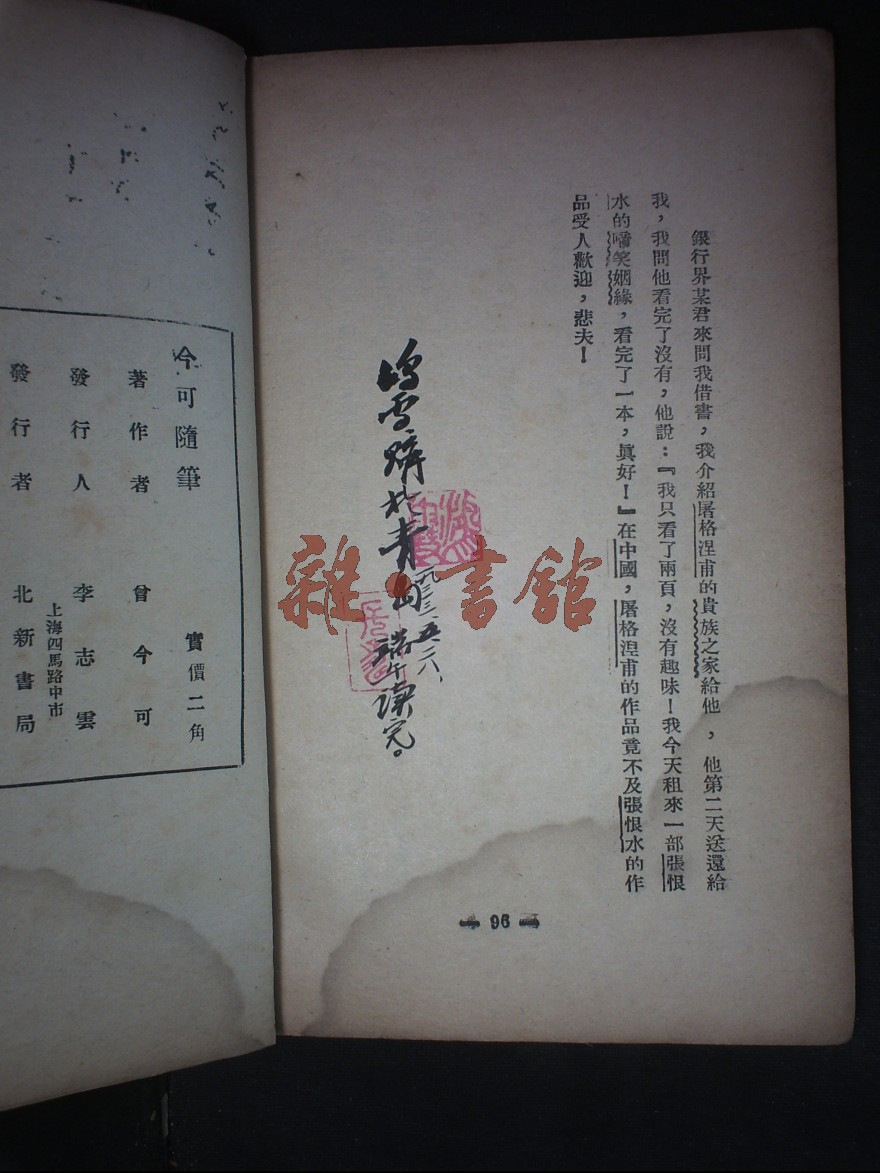 銀行界某君來問我借書,我介紹屠格涅甫的貴族之家給他,他第二天送還給
我,我問他看完了沒有,他說:『我只看了兩頁,沒有趣味!我今天租來一部張恨
水的啼笑姻緣,看完了一本,眞好!』在中國,屠格涅甫的作品竟不及張恨水的作
品受人歡迎,悲夫!
雪 於青島
一九三三、五、二八、
端午讀完。
96
雜·書館
今可隨筆
實價二角
著作者 曾今可
發行人 李志雲
上海四馬路中市
發行者 北新書局